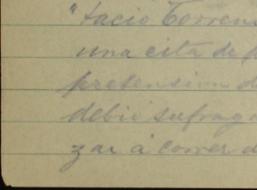 "tacio Torren
una cita de
pretension d
debió sufrag
zar á correr d